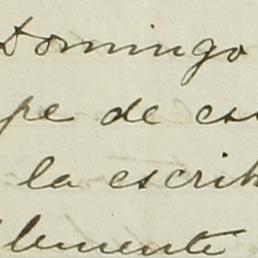 Domingo
pe de es
la escrib
lemente